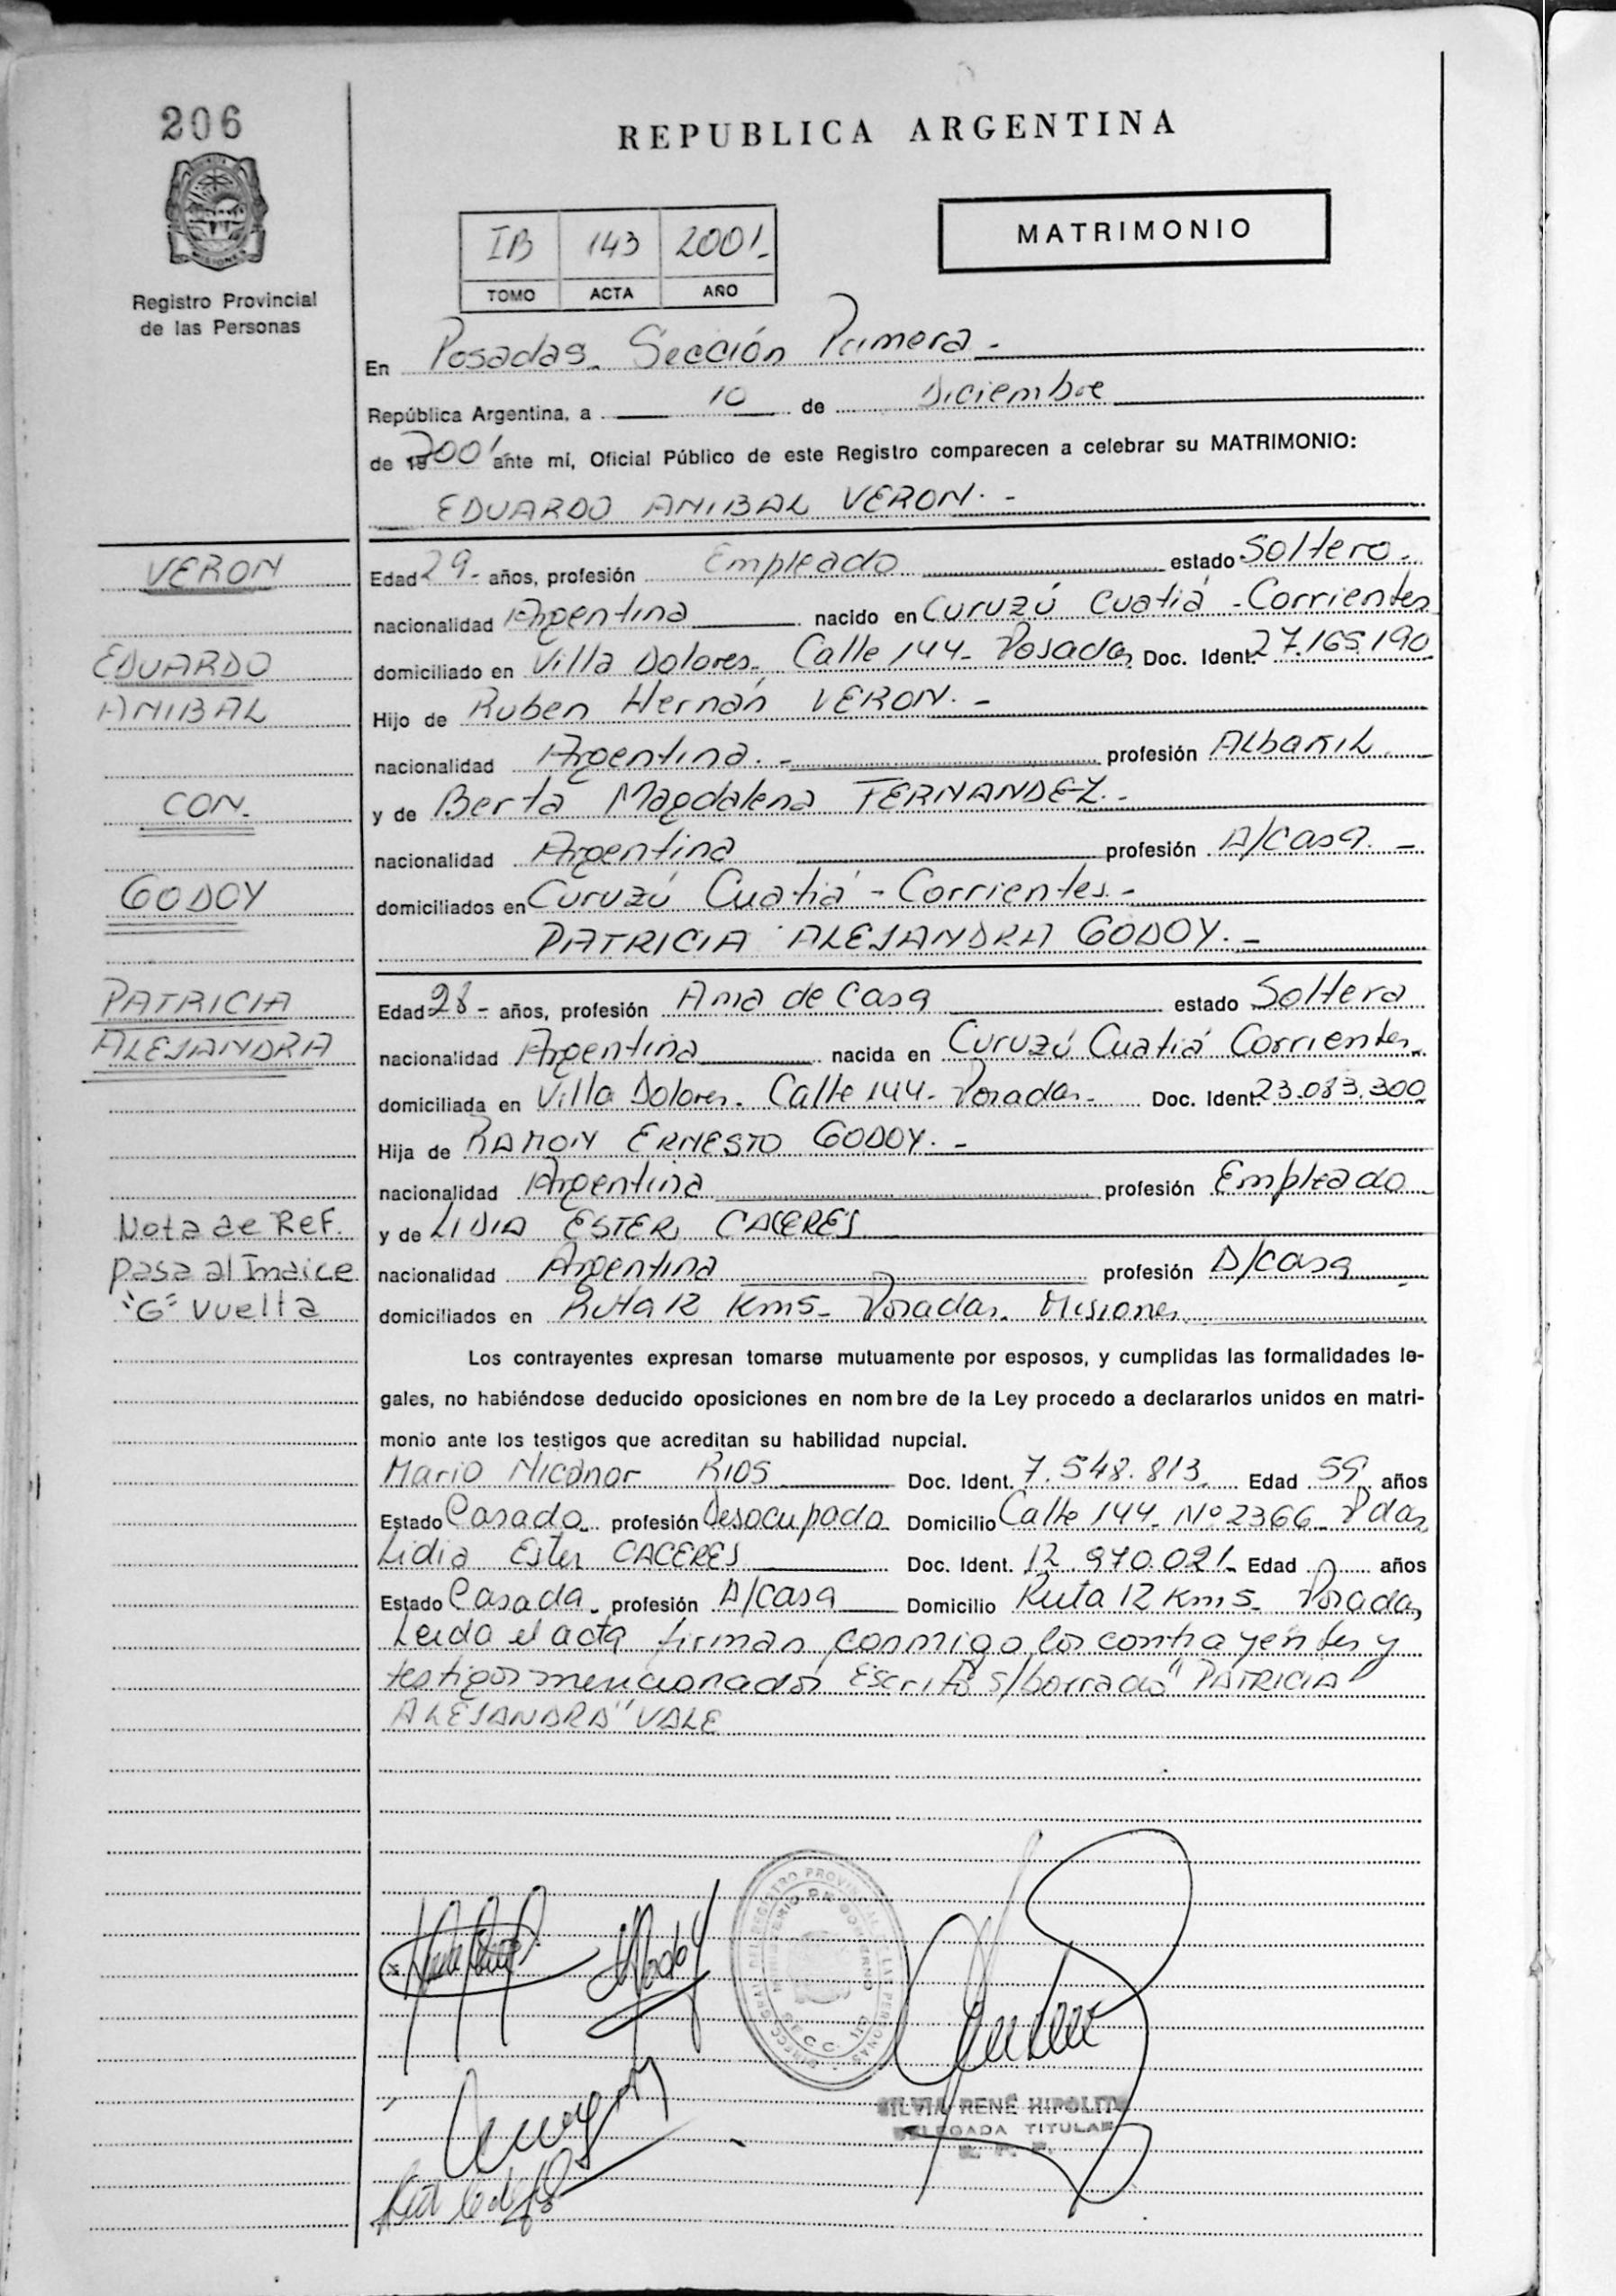 206
REPUBLICA ARGENTINA
MATRIMONIO
IB 143 2001.-
TOMO ACTA AÑO
Registro Provincial
de las Personas
En Posadas. Sección Primera.-
República Argentina, a 10 de Diciembre
de 19 2001 ante mí, Oficial Público de este Registro comparecen a celebrar su MATRIMONIO:
EDUARDO ANIBAL VERON.-
VERON
Edad 29.- años, profesión Empleado estado Soltero.-
nacionalidad Argentina nacido en Curuzú Cuatiá - Corrientes
EDUARDO
domiciliado en Villa Dolores. Calle 144- Posadas Doc. Ident. 27.165.190
ANIBAL
Hijo de Ruben Hernán VERON.-
nacionalidad Argentina.- profesión Albañil
CON.
y de Berta Magdalena FERNANDEZ.-
nacionalidad Argentina profesión A/casa.-
GODOY
domiciliados en Curuzú Cuatiá - Corrientes.-
PATRICIA ALEJANDRA GODOY.-
PATRICIA
Edad 28- años, profesión Ama de Casa estado Soltera
ALEJANDRA
nacionalidad Argentina nacida en Curuzú Cuatiá Corrientes
domiciliada en Villa Dolores. Calle 144- Posadas- Doc. Ident. 23.083.300
Hija de RAMON ERNESTO GODOY.-
nacionalidad Argentina profesión Empleado
Nota de Ref.
y de LIDIA ESTER CACERES
pasa al Indice
nacionalidad Argentina profesión A/casa
"G" vuelta
domiciliados en Ruta 12 Km5- Posadas. Misiones
Los contrayentes expresan tomarse mutuamente por esposos, y cumplidas las formalidades le-
gales, no habiéndose deducido oposiciones en nombre de la Ley procedo a declararlos unidos en matri-
monio ante los testigos que acreditan su habilidad nupcial.
Mario Nicanor RIOS Doc. Ident. 7.548.813 Edad 59 años
Estado Casado profesión Desocupado Domicilio Calle 144- Nº 2366- Pdas
Lidia Ester CACERES Doc. Ident. 12.970.021 Edad años
Estado Casada profesión A/casa Domicilio Ruta 12 Km5- Posadas
Leida el acta firman conmigo los contrayentes y
testigos mencionados Escrito s/borrado "PATRICIA
ALEJANDRA" VALE
SILVIA RENÉ HIPOLITO
DELEGADA TITULAR